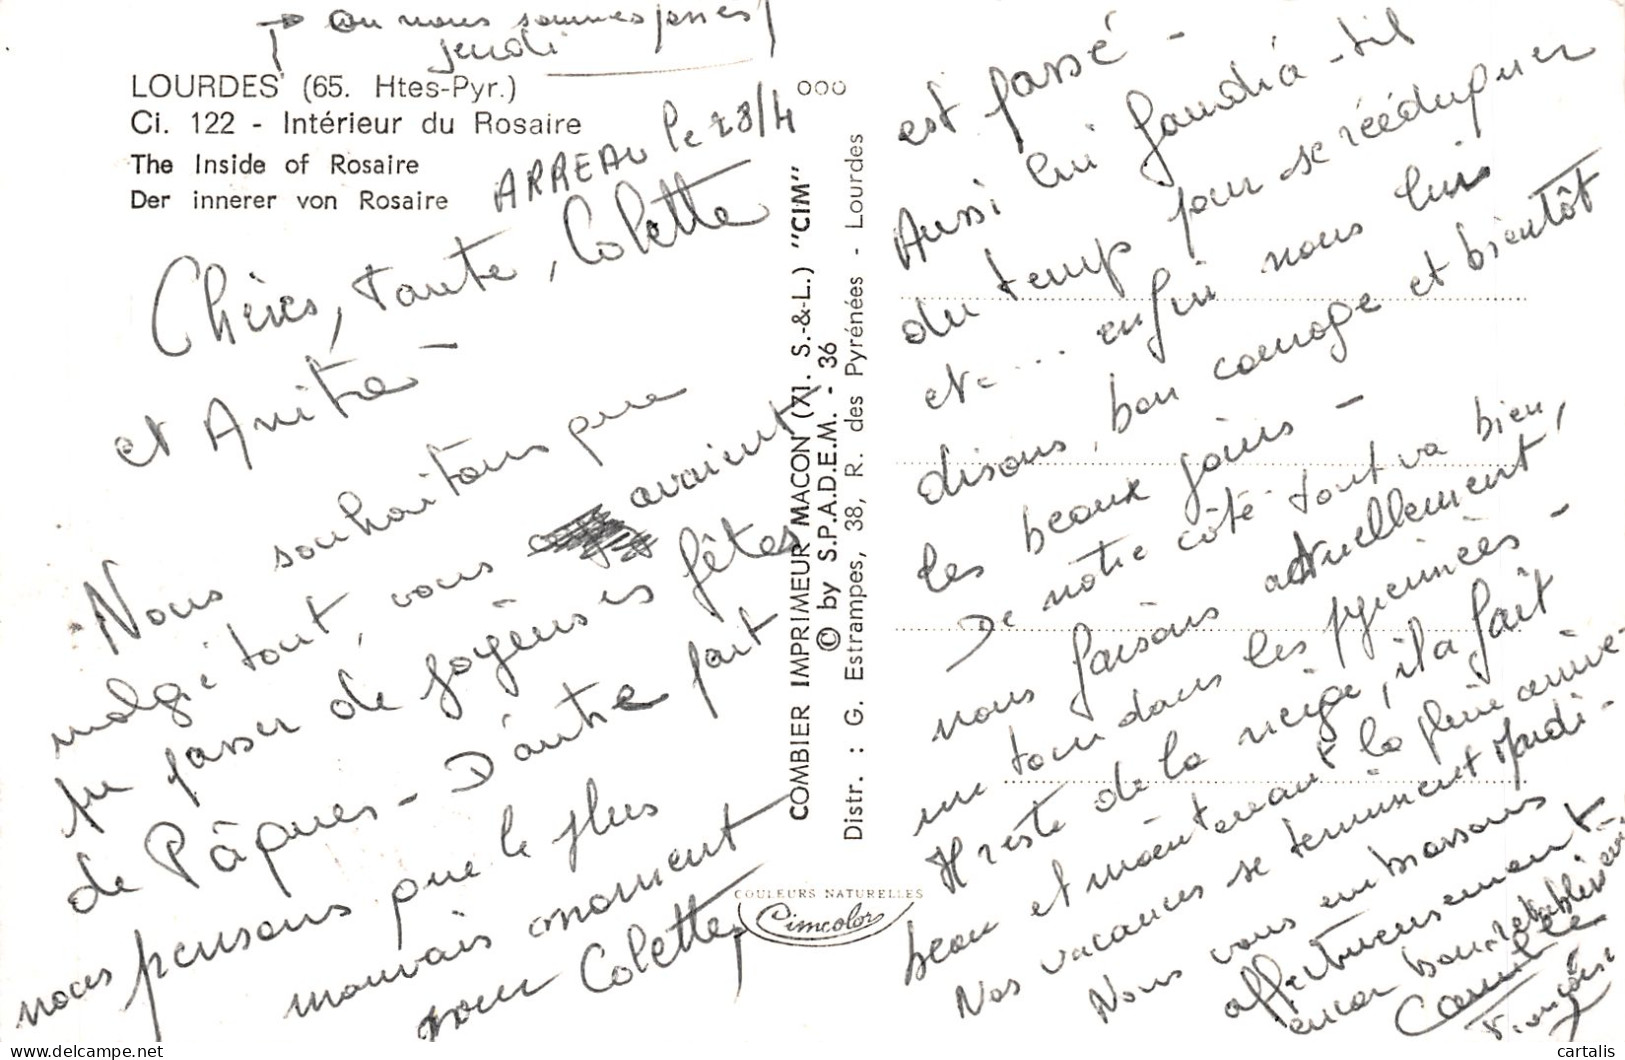 → où nous sommes passés
jeudi
LOURDES (65. Htes-Pyr.)
Ci. 122 - Intérieur du Rosaire
The Inside of Rosaire
Der innerer von Rosaire
ARREAU le 28/4
Chères, tante, Colette
et Anita -
Nous souhaitons que
malgré tout, vous avaient
pu passer de joyeuses fêtes
de Pâques - D'autre part
nous pensons que le plus
mauvais moment
pour Colette,
COMBIER IMPRIMEUR MACON (71. S.-&-L.) "CIM"
© by S.P.A.D.E.M. - 36
Distr. : G. Estrampes, 38, R. des Pyrénées - Lourdes
COULEURS NATURELLES
Cimcolor
est passé -
Aussi lui faudra-t-il
du temps pour se rééduquer
et .... enfin nous lui
disons, bon courage et bientôt
les beaux jours -
De notre côté tout va bien,
nous faisons actuellement,
un tour dans les pyrénnées -
Il reste de la neige, il a fait
beau et maintenant la pluie arrive -
Nos vacances se terminent Mardi -
Nous vous embrassons
affectueusement
encor bon rétablissement
Camille
Françoise
cartalis